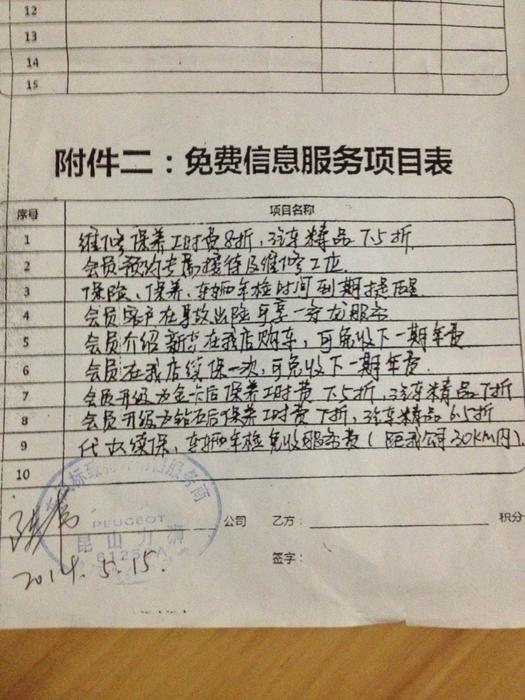 12
13
14
15
附件二：免费信息服务项目表
序号 项目名称
1 维修保养工时费8折，汽车精品7.5折
2 会员预约专属接待及维修工位
3 保险、保养、车辆年检时间到期提醒
4 会员客户在事故出险可享一条龙服务
5 会员介绍新车在我店购车，可免收下一期年费
6 会员在我店续保一次，可免收下一期年费
7 会员升级为金卡后保养工时费7.5折，汽车精品7折
8 会员升级为钻石后保养工时费7折，汽车精品6.5折
9 代办续保、车辆年检免收服务费（距我公司30KM内）
10
公司 乙方： 积分
PEUGEOT
昆山力狮
签字：
2014.5.15.